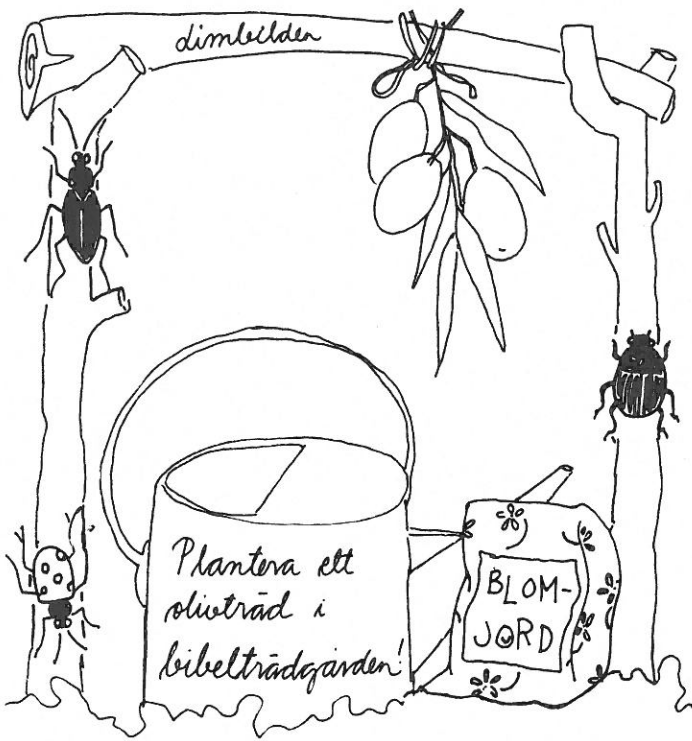 dimbilden
Plantera ett
olivträd i
bibelträdgården!
BLOM-
JORD